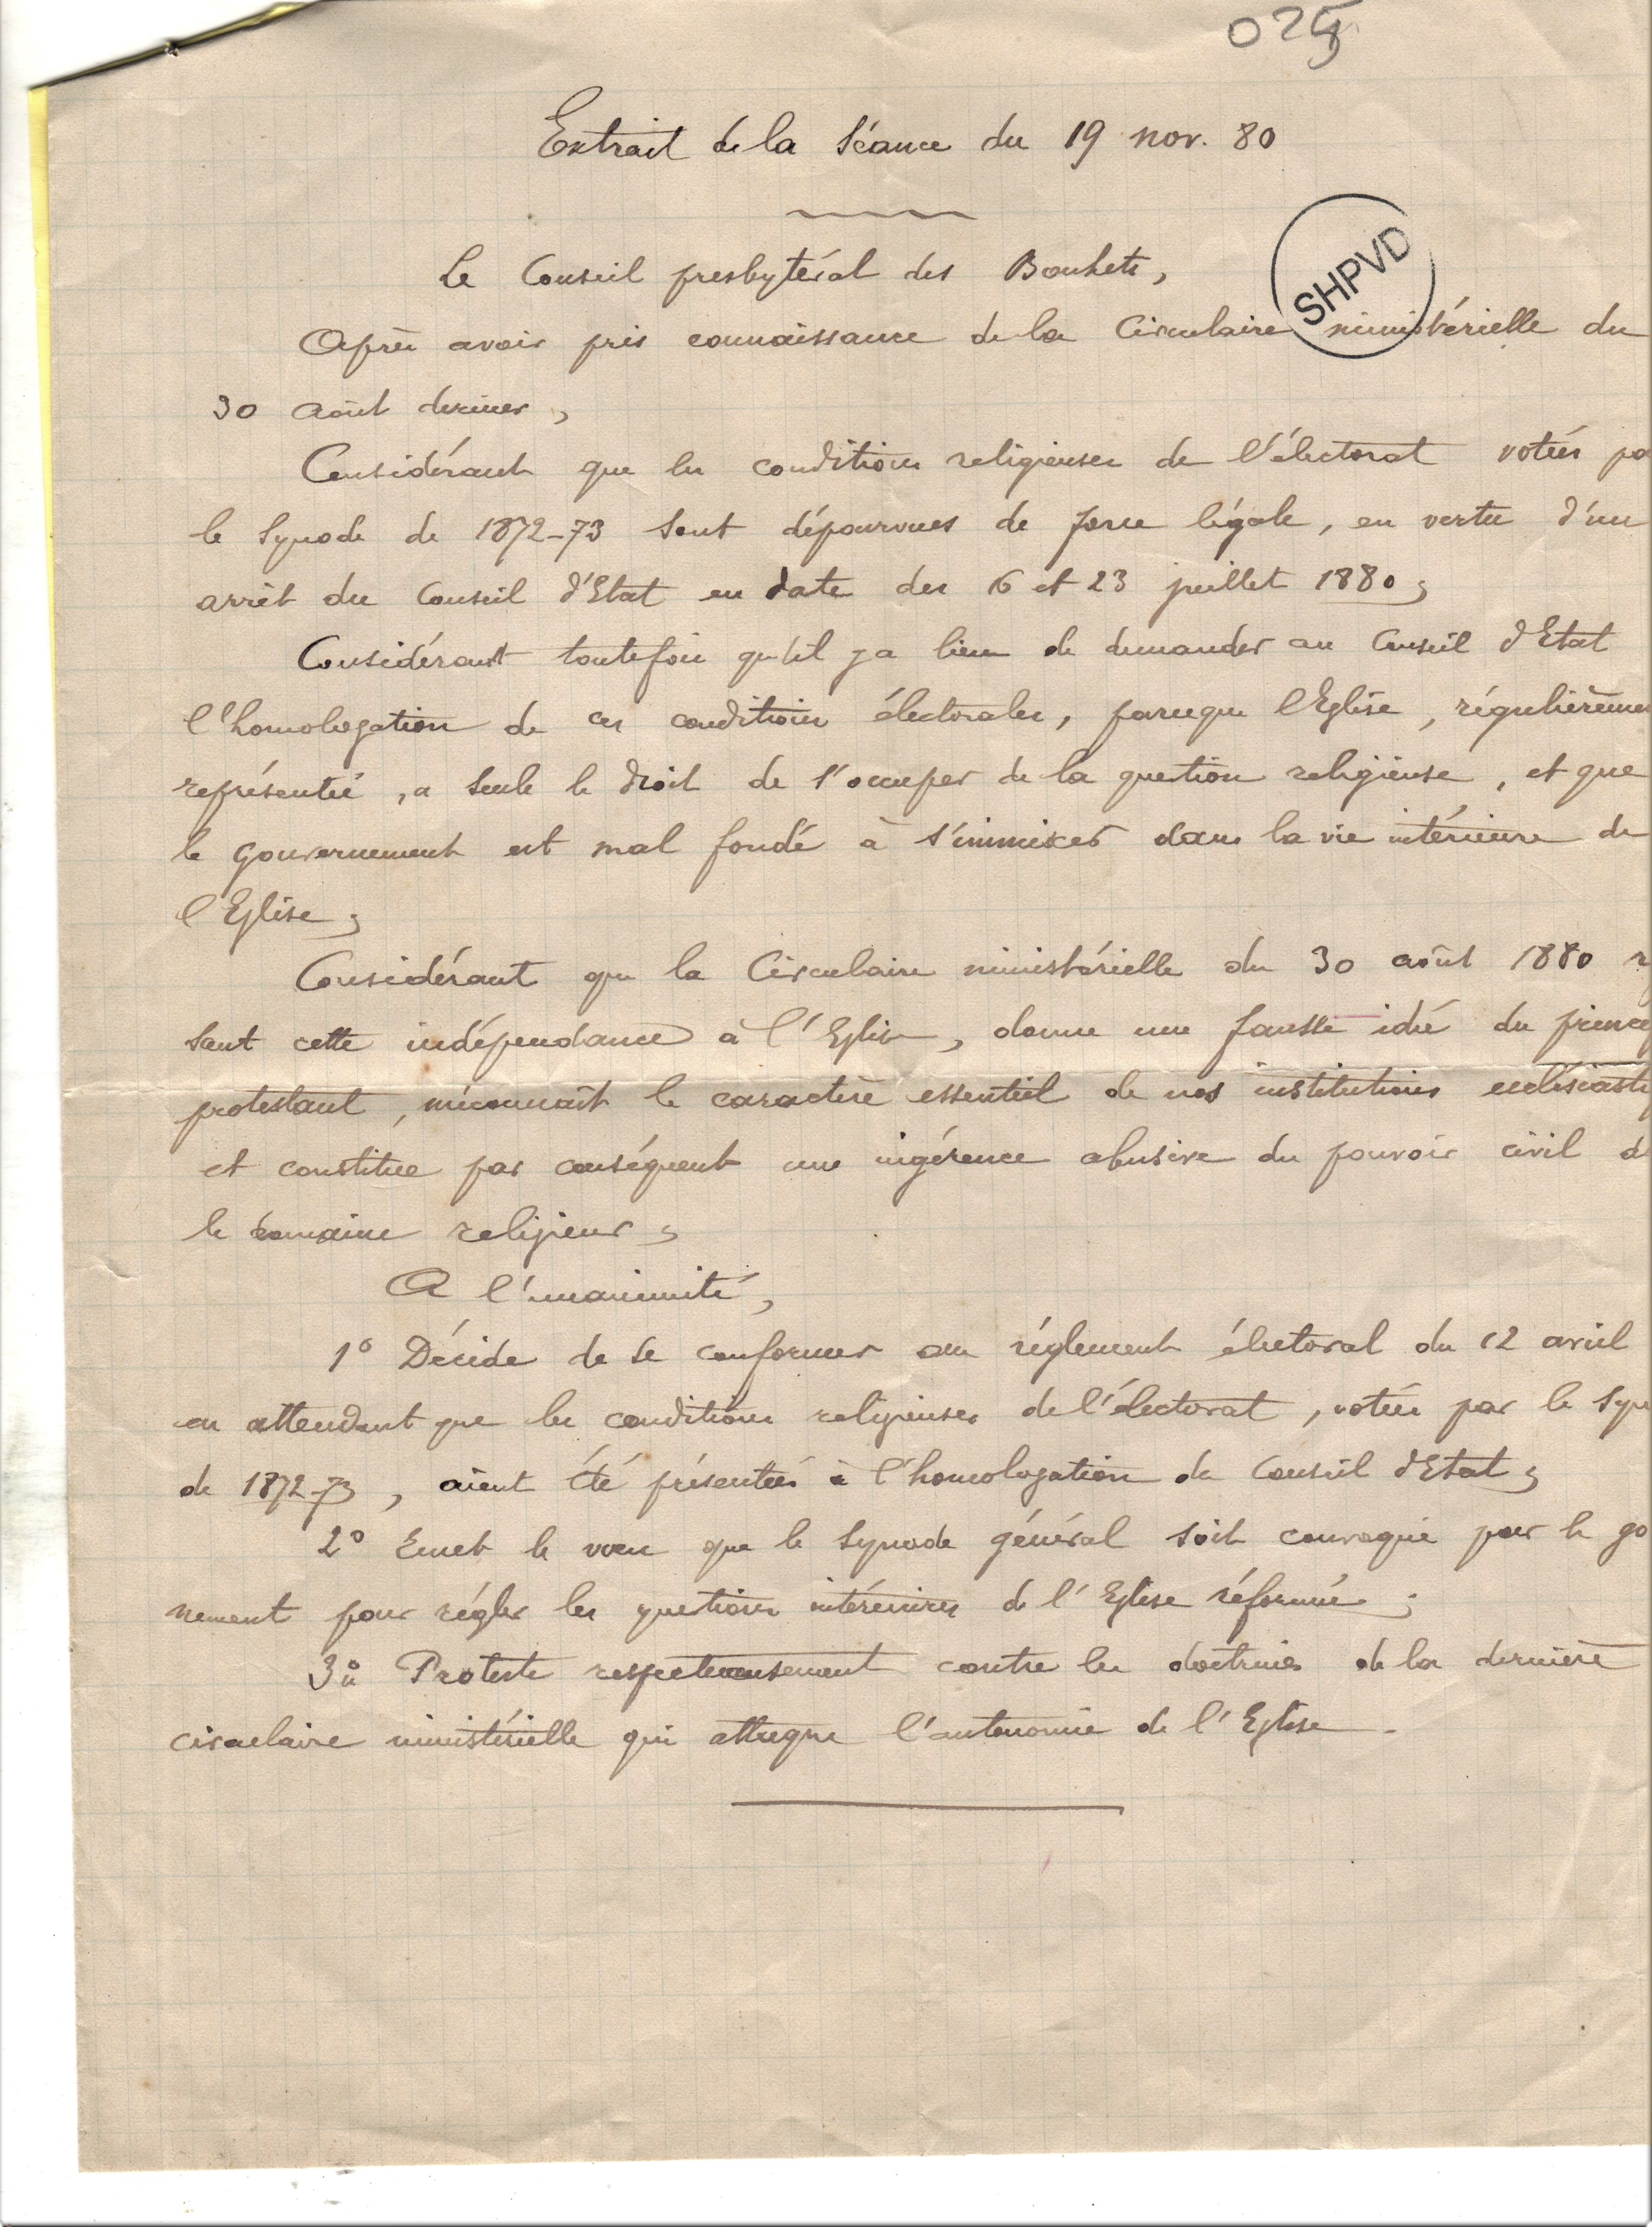 025
Extrait de la Séance du 19 nov. 80
SHPVD
Le Conseil presbytéral des Bouhets,
Après avoir pris connaissance de la Circulaire ministérielle du
30 Août dernier,
Considérant que les conditions religieuses de l'électorat votées pa
le Synode de 1872-73 sont dépourvues de force légale, en vertu d'un
arrêt du Conseil d'Etat en date des 16 et 23 juillet 1880;
Considérant toutefois qu'il y a lieu de demander au Conseil d'Etat
l'homologation de ces conditions électorales, parceque l'Eglise, régulièreme
représentée, a seule le droit de s'occuper de la question religieuse, et que
le gouvernement est mal fondé à s'immiscer dans la vie intérieure de
l'Eglise;
Considérant que la Circulaire ministérielle du 30 août 1880
sant cette indépendance à l'Eglise, donne une fausse idée du princi
protestant, méconnaît le caractère essentiel de nos institutions ecclésiasti
et constitue par conséquent une ingérence abusive du pouvoir civil d
le domaine religieux;
A l'unanimité,
1° Décide de se conformer au réglement électoral du 12 avril
en attendant que les conditions religieuses de l'électorat, votées par le Syn
de 1872-73, aient été présentées à l'homologation du Conseil d'Etat;
2° Emet le voeu que le Synode général soit convoqué par le go
nement pour régler les questions intérieures de l'Eglise réformée;
3° Proteste respectueusement contre les doctrines de la dernière
circulaire ministérielle qui attaque l'autonomie de l'Eglise.